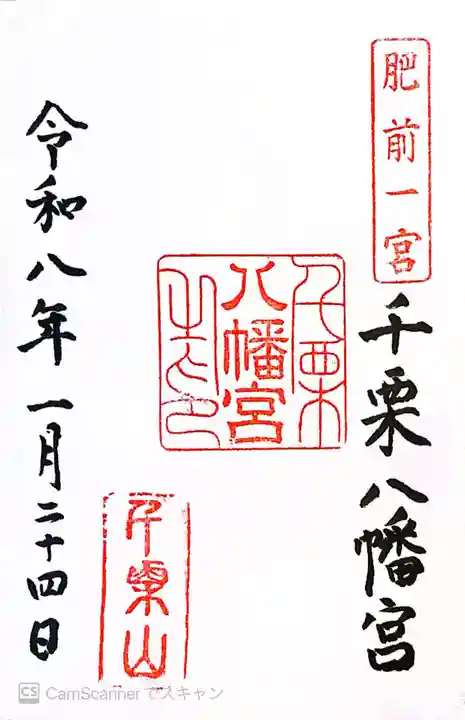 肥前一宮
千栗八幡宮
千栗
八幡宮
之印
千栗山
令和八年一月二十四日
CS CamScannerでスキャン